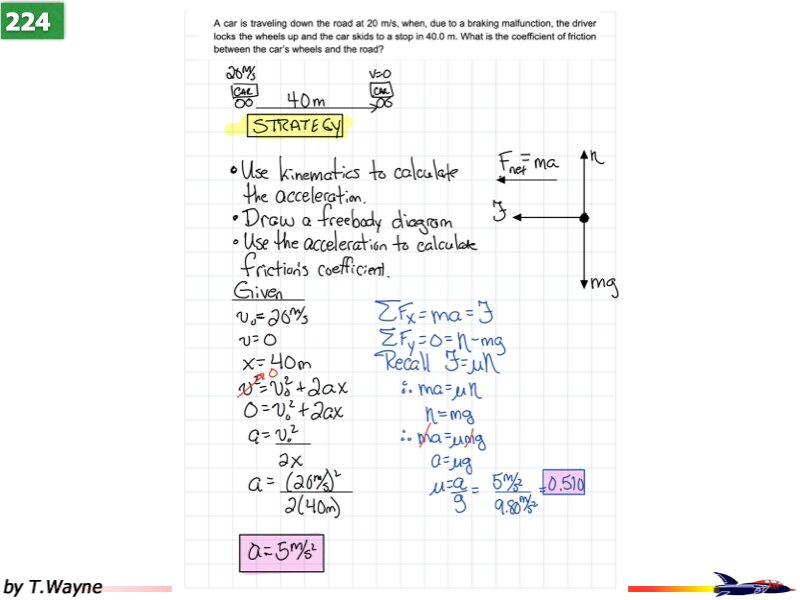 224
A car is traveling down the road at 20 m/s, when, due to a braking malfunction, the driver
locks the wheels up and the car skids to a stop in 40.0 m. What is the coefficient of friction
between the car's wheels and the road?
20m/s
v=0
CAR
CAR
40m
STRATEGY
• Use kinematics to calculate
the acceleration.
• Draw a freebody diagram
• Use the acceleration to calculate
friction's coefficient.
Fnet=ma
n
F
mg
Given
v₀=20m/s
v=0
x=40m
0
v²=v₀²+2ax
0=v₀²+2ax
a=v₀²
2x
a=(20m/s)²
2(40m)
a=5m/s²
ΣFx=ma=F
ΣFy=0=n-mg
Recall F=μn
∴ ma=μn
n=mg
∴ ma=μmg
a=μg
μ=a/g = 5m/s² / 9.80m/s² = 0.510
by T.Wayne